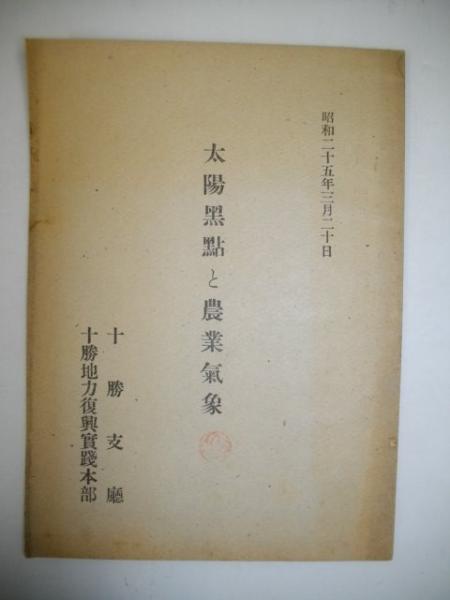 昭和二十五年三月二十日
太陽黑點と農業氣象
十勝支廳
十勝地力復興實踐本部